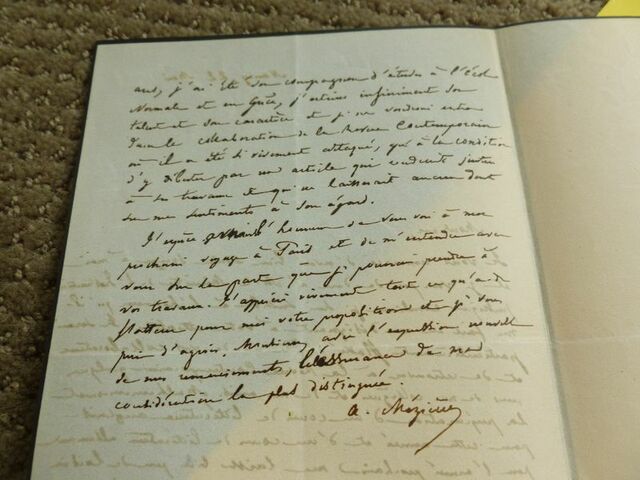 ans, j'ai été son compagnon d'études à l'école
Normale et en Grèce, j'estime infiniment son
talent et son caractère et je ne voudrais entrer
dans la collaboration de la Revue Contemporaine
où il a été si vivement attaqué, qu'à la condition
d'y débuter par un article qui rendrait justice
à ses travaux et qui ne laisserait aucun doute
sur mes sentiments à son égard.
J'espère avoir l'honneur de vous voir à mon
prochain voyage à Paris et de m'entendre avec
vous sur la part que je pourrais prendre à
vos travaux. J'apprécie vivement tout ce qu'a de
flatteur pour moi votre proposition et je vous
prie d'agréer, Monsieur, avec l'expression nouvelle
de mes remerciements, l'assurance de ma
considération la plus distinguée.
A. Mézières